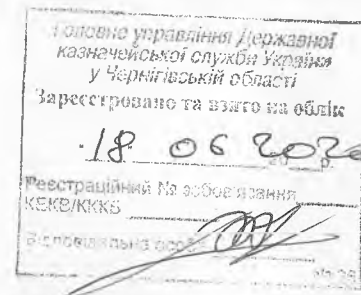 Головне управління Державної
казначейської служби України
у Чернігівській області
Зареєстровано та взято на облік
18 06 2020
Реєстраційний № зобов'язання
КЕКВ/КККБ
Відповідальна особа